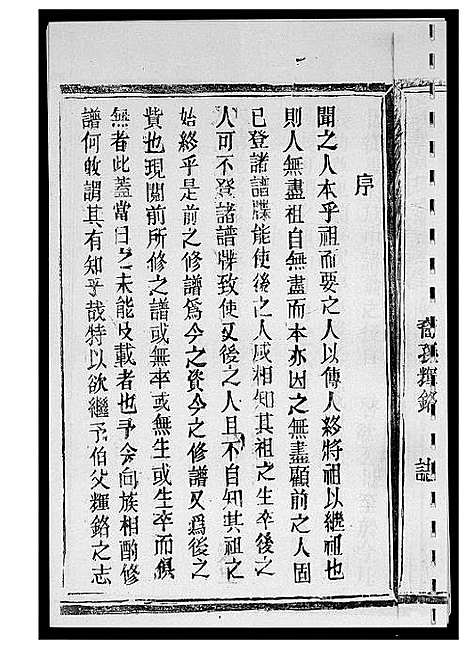 裔孫輝鉻 誌
序
聞之人本乎祖而要之人以傳人終將祖以繼祖也
則人無盡祖自無盡而本亦因之無盡顧前之人固
已登諸譜牒能使後之人咸相知其祖之生卒後之
人可不登諸譜牒致使又後之人且不自知其祖之
始終乎是前之修譜為今之資今之修譜又為後之
貲也現閱前所修之譜或無卒或無生或生卒而俱
無者此蓋當日之未能及載者也予今向族相酌修
譜何敢謂其有知乎哉特以欲繼予伯父輝鉻之志